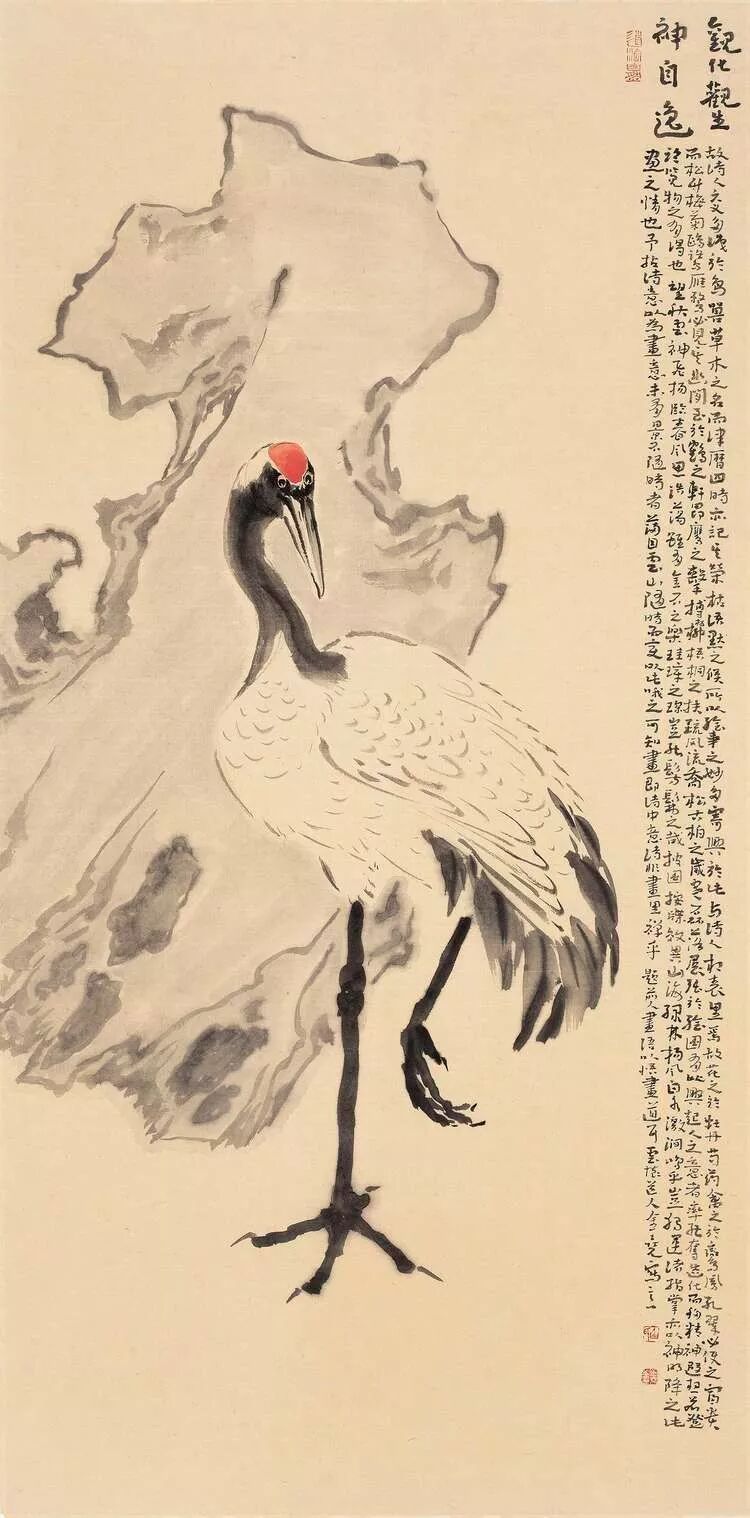 觀化觀生
神自逸
故詩人六義多識於鳥獸草木之名而律曆四時亦記其榮枯語默之候所以繪事之妙多寓興於此与詩人相表里焉故花之於牡丹芍药禽之於鸞鳳孔翠必使之富贵
而松竹梅菊鷗鷺雁鶩必見之幽閒至於鶴之軒昂鷹之擊搏楊柳梧桐之扶疏風流喬松古柏之歲寒磊落展張於繪圖有以興起人之意者率能奪造化而移精神遐想若登
臨览物之有得也望秋雲神飛揚臨春風思浩蕩雖有金石之樂珪璋之琛豈能髣髴之哉披圖按牒效異山海綠林揚風白水激澗嗚乎豈獨運諸指掌亦以神明降之此
畫之情也予拈詩意以為畫意未有景不隨時者滿目雲山隨時而变以此哦之可知畫即詩中意詩非畫里禪乎 題前人畫語以悟畫道耳雲懷道人寫之